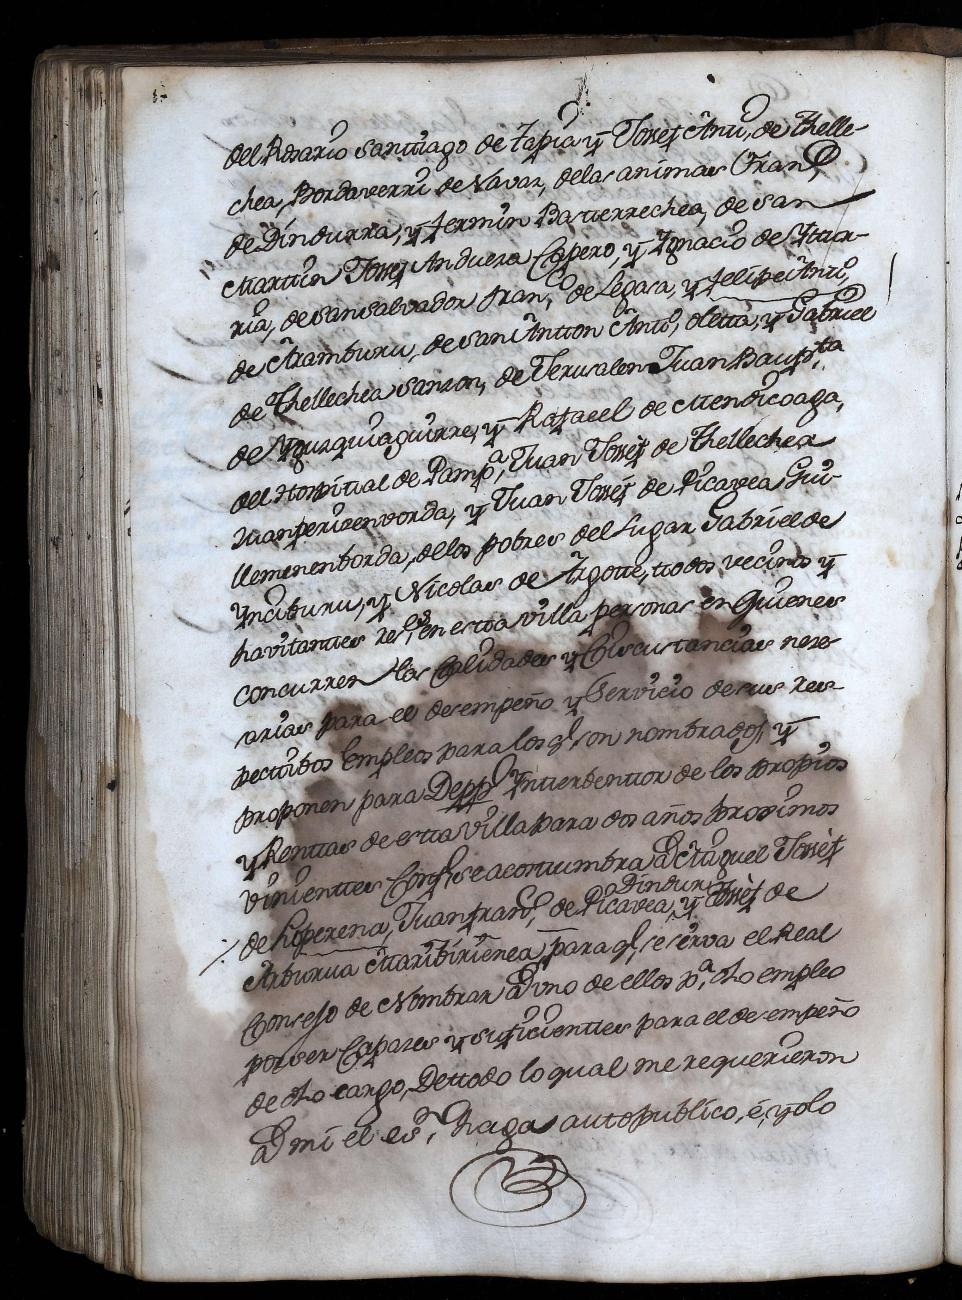 del Rosario Santiago de Tapia y Joseph Antt.º de Thelle-
chea, Bordaverri de Navar, de las animas Fran.co
de Dindurra, y fermin Basterrechea, de San
Martin Joseph Anduera Capero, y Ygnacio de Yttur-
ria, de San Salvador fran.co de Legasa, y felipe Antt.º
de Aramburu, de San Antton Antt.º oletta, y Gabriel
de Thellechea Sanson, de Jerusalem Juan Baup.tta
de Yguzquiaguirre, y Rafaeel de Mendicoaga,
del Hospital de Pamp.a, Juan Joseph de Thellechea
Juanperizenborda, y Juan Joseph de Picavea Gui-
llemenenborda, de los pobres del Lugar Gabriel de
Ynciburu, y Nicolas de Argotte, ttodos vecinos y
havitanttes res.tes en esta villa personas en Quienes
concurren las Calidades y Circustancias nese-
arias para el desempeño y Servicio de sus res-
pecttibos Empleos para los q.e son nombrados, y
proponen para Depp.º Ynterbenttor de los propios
y Renttas de estta Villa para dos años proximos
vinienttes Conf.e se acostumbra a Miguel Joseph
de Loperena, Juan fran.co de Picavea, y Joseph de
Dindurra
Arburua Maribirienea, para q.e se sirva el Real
Consejo de Nombrar a uno de ellos p.a dho empleo
por ser Capazes y suficienttes para el desempeño
de dho cargo, De ttodo lo qual me requerieron
a mi el es.no haga auto publico, é, yo lo